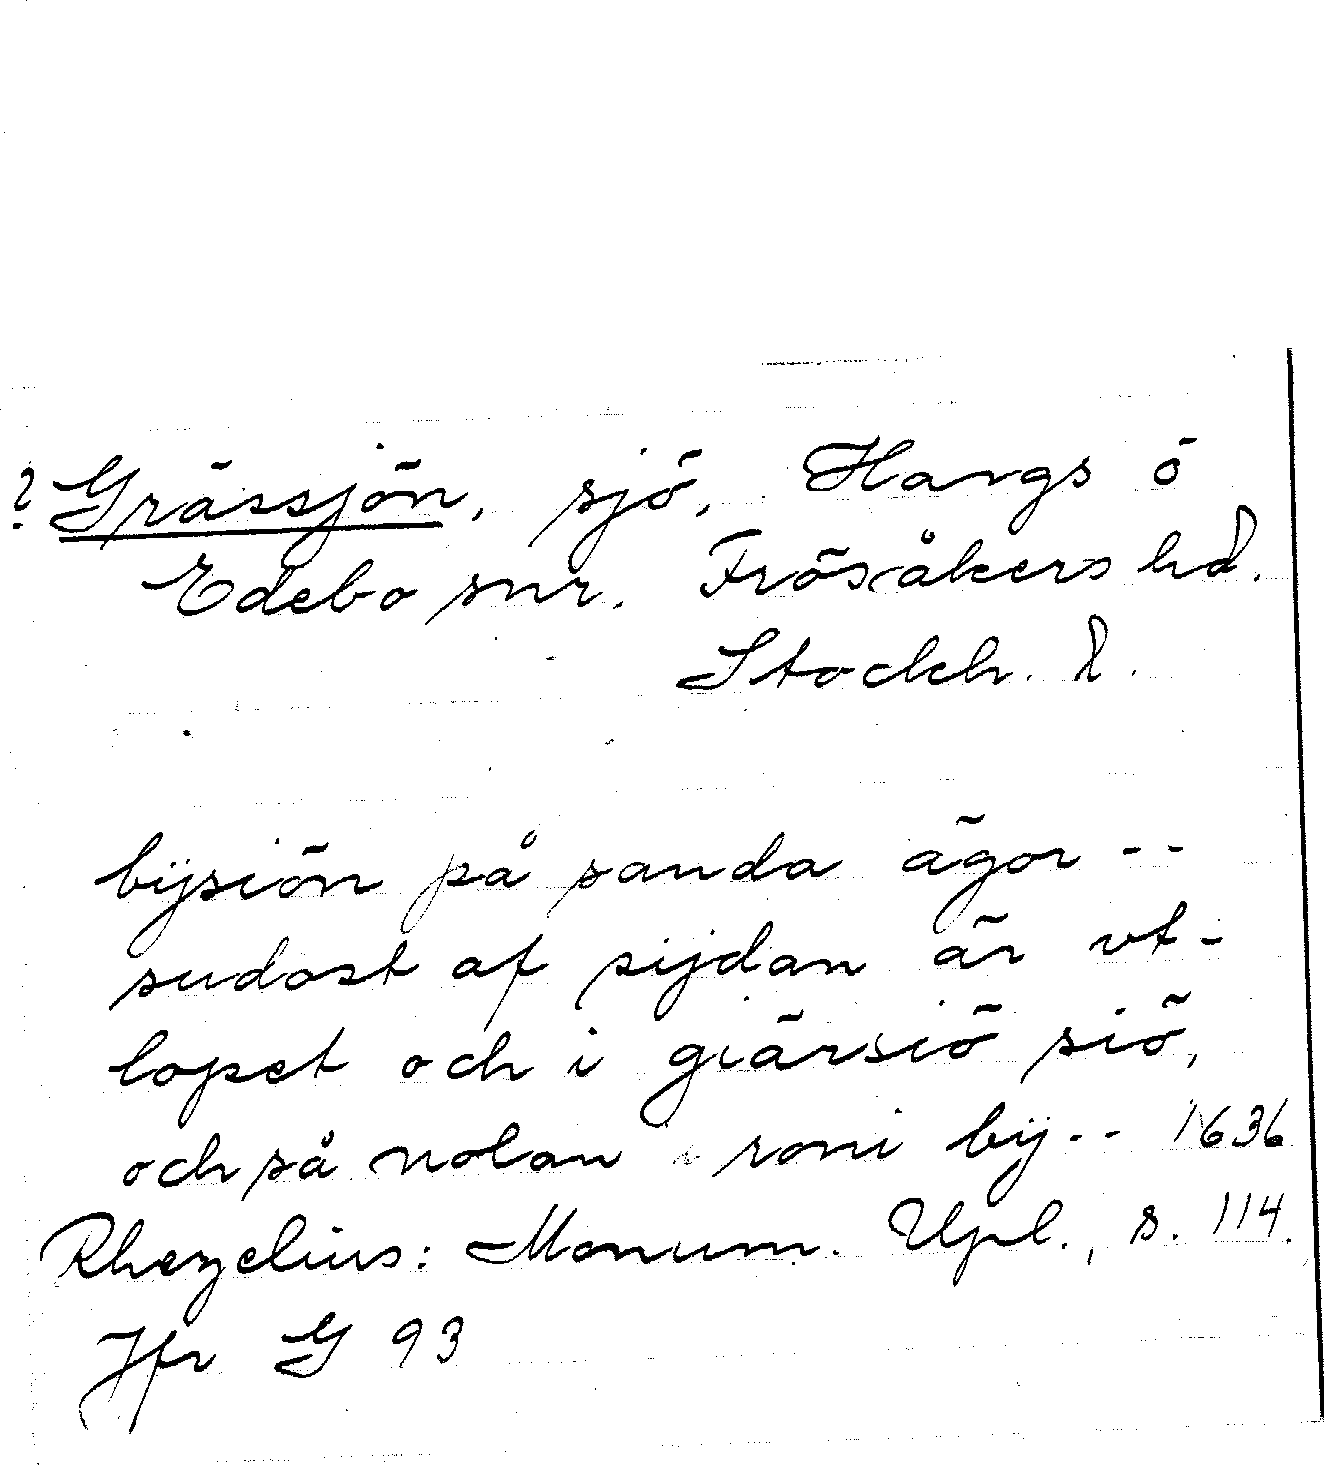 ? Grässjön, sjö, Hargs o
Edebo snr. Frösåkers hd.
Stockh. l.
bijsiön på sanda ägor --
sudost af sijdan är vt-
lopet och i giärsiö siö,
och så nolan i roni bij -- 1636
Rhezelius: Monum. Upl., s. 114.
Jfr G 93